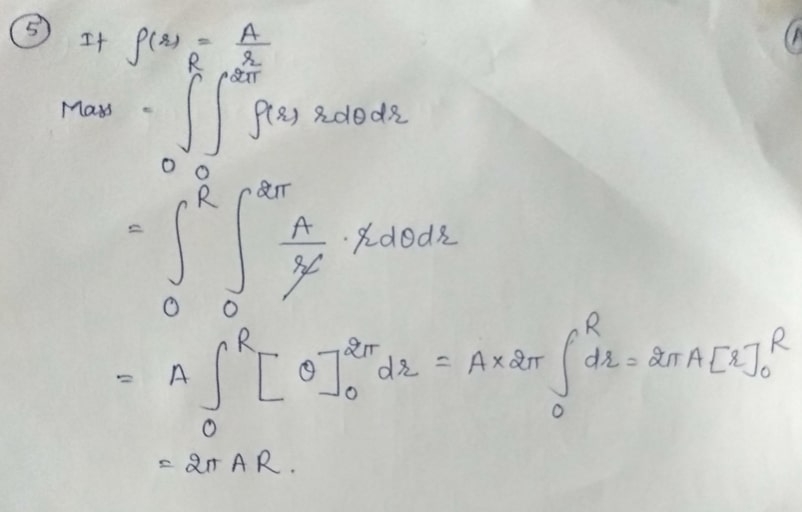 ⑤ If ρ(r) = A/r
Mass = ∫₀ᴿ ∫₀²π ρ(r) r dθ dr
= ∫₀ᴿ ∫₀²π A/r · r dθ dr
= A ∫₀ᴿ [θ]₀²π dr = A × 2π ∫₀ᴿ dr = 2π A [r]₀ᴿ
= 2π A R.